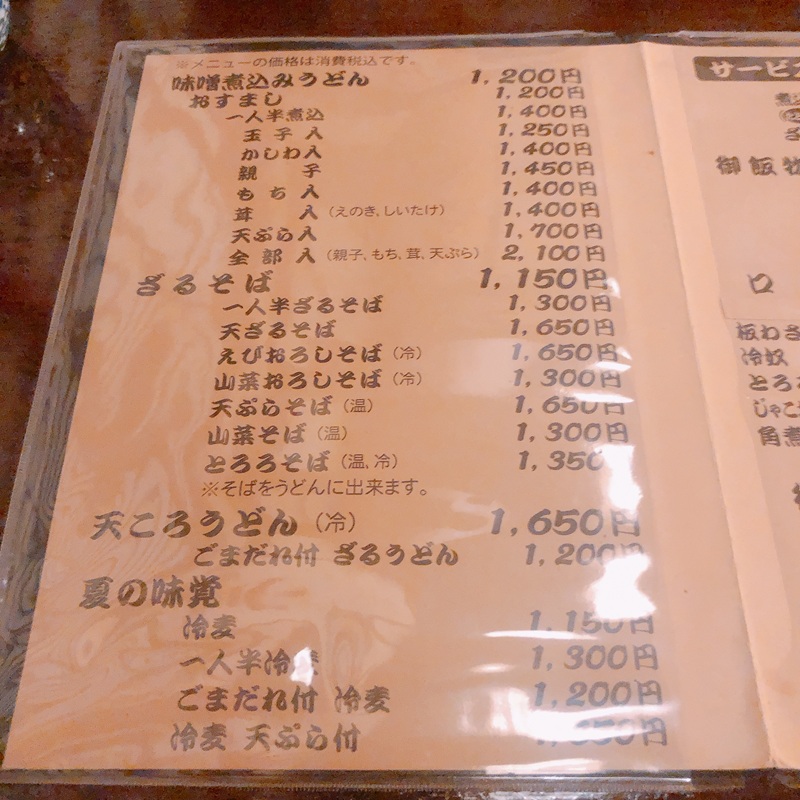 ※メニューの価格は消費税込です。
味噌煮込みうどん 1,200円
おすまし 1,200円
一人半煮込 1,400円
玉子入 1,250円
かしわ入 1,400円
親子 1,450円
もち入 1,400円
茸入（えのき,しいたけ） 1,400円
天ぷら入 1,700円
全部入（親子,もち,茸,天ぷら） 2,100円
ざるそば 1,150円
一人半ざるそば 1,300円
天ざるそば 1,650円
えびおろしそば（冷） 1,650円
山菜おろしそば（冷） 1,300円
天ぷらそば（温） 1,650円
山菜そば（温） 1,300円
とろろそば（温,冷） 1,350
※そばをうどんに出来ます。
天ころうどん（冷） 1,650円
ごまだれ付 ざるうどん 1,200円
夏の味覚
冷麦 1,150円
一人半冷麦 1,300円
ごまだれ付 冷麦 1,200円
冷麦 天ぷら付 1,650円
サービス
御飯物
口
板わさ
冷奴
とろろ
じゃこ
角煮